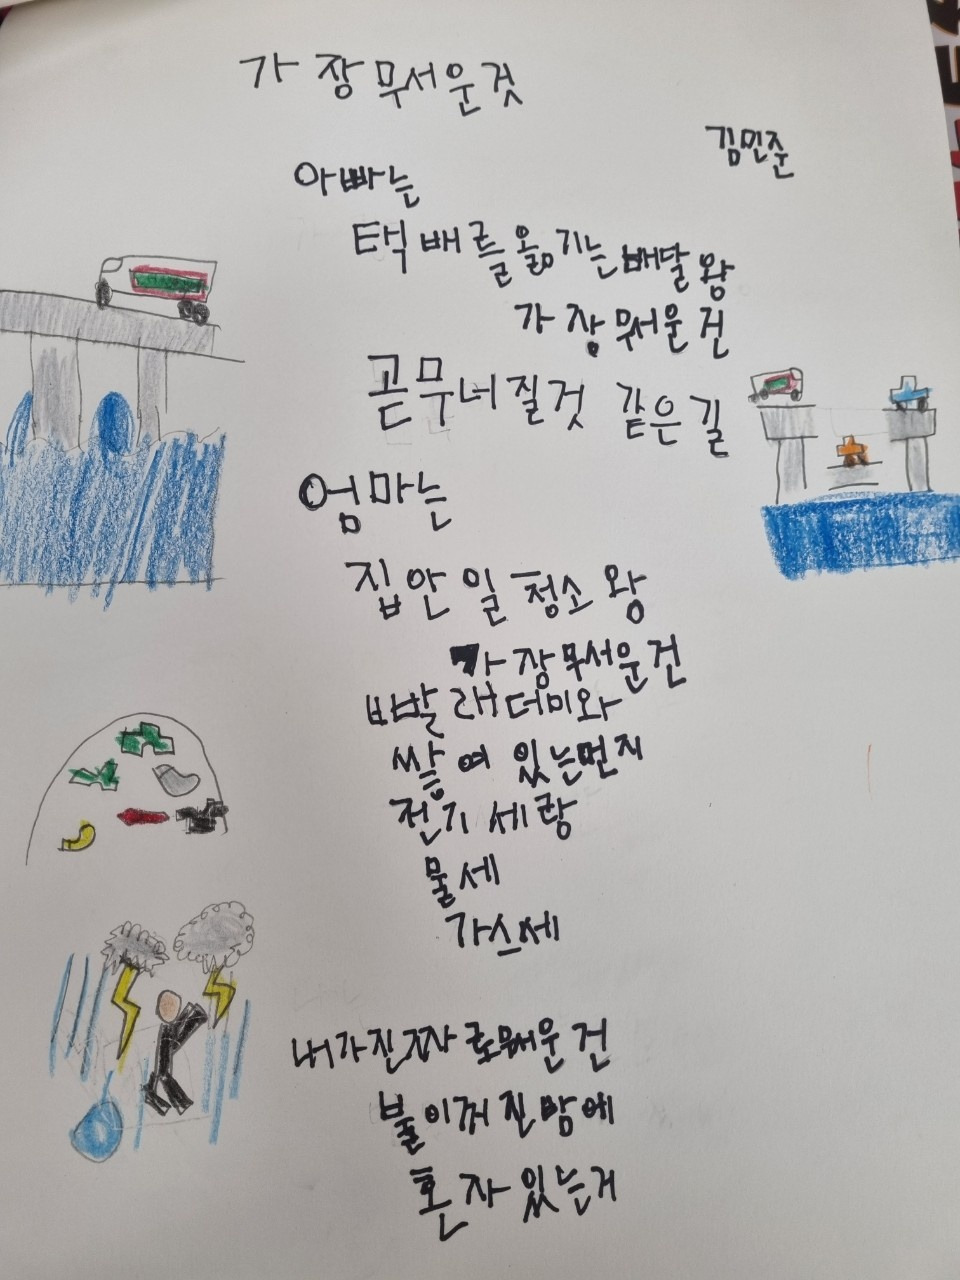 가장무서운것
김민준
아빠는
턱배를옮기는배달왕
가장무서운건
곧무너질것 같은길
엄마는
집안일청소왕
가장무서운건
빠발래더미와
쌀여있는먼지
전기세랑
물세
가스세
내가진짜로무서운건
불이꺼진밤에
혼자있는거